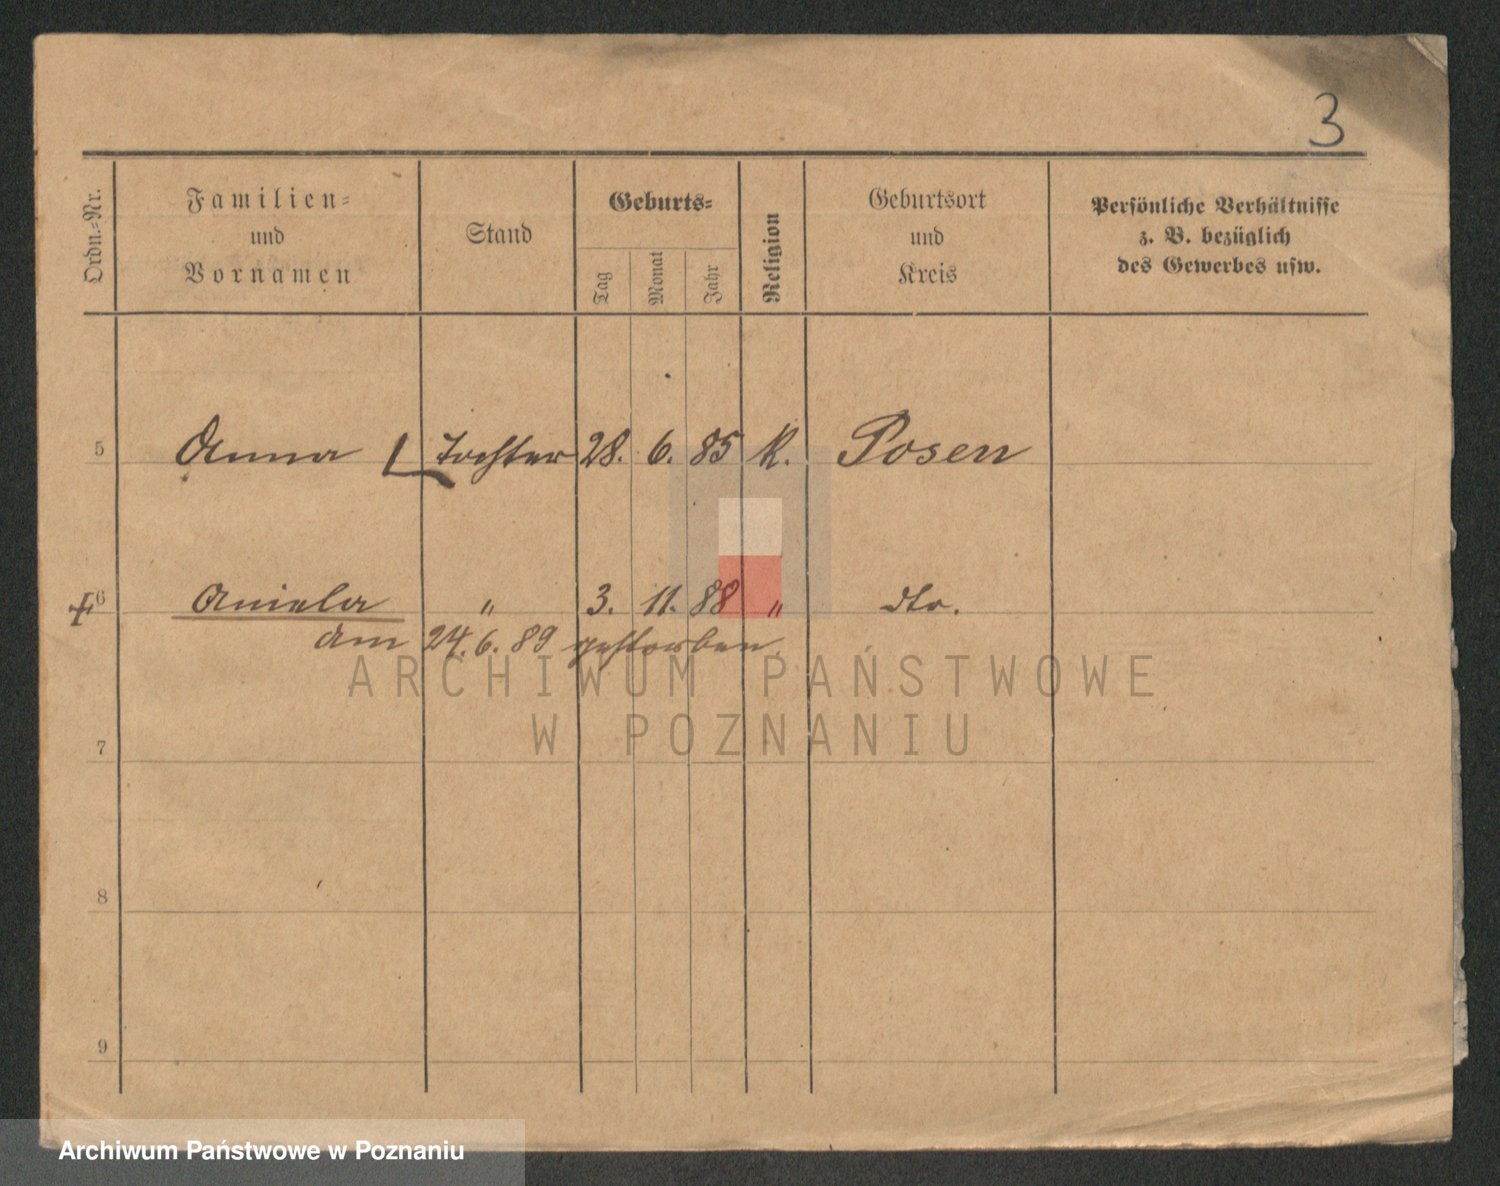 3
Ordn.-Nr.
Familien-
und
Vornamen
Stand
Geburts-
Tag
Monat
Jahr
Religion
Geburtsort
und
Kreis
Persönliche Verhältnisse
z. B. bezüglich
des Gewerbes usw.
5 Anna Tochter 28. 6. 85 K. Posen
6 Aniela " 3. 11. 88 " dto.
am 24. 6. 89 gestorben.
ARCHIWUM PAŃSTWOWE
W POZNANIU
7
8
9
Archiwum Państwowe w Poznaniu